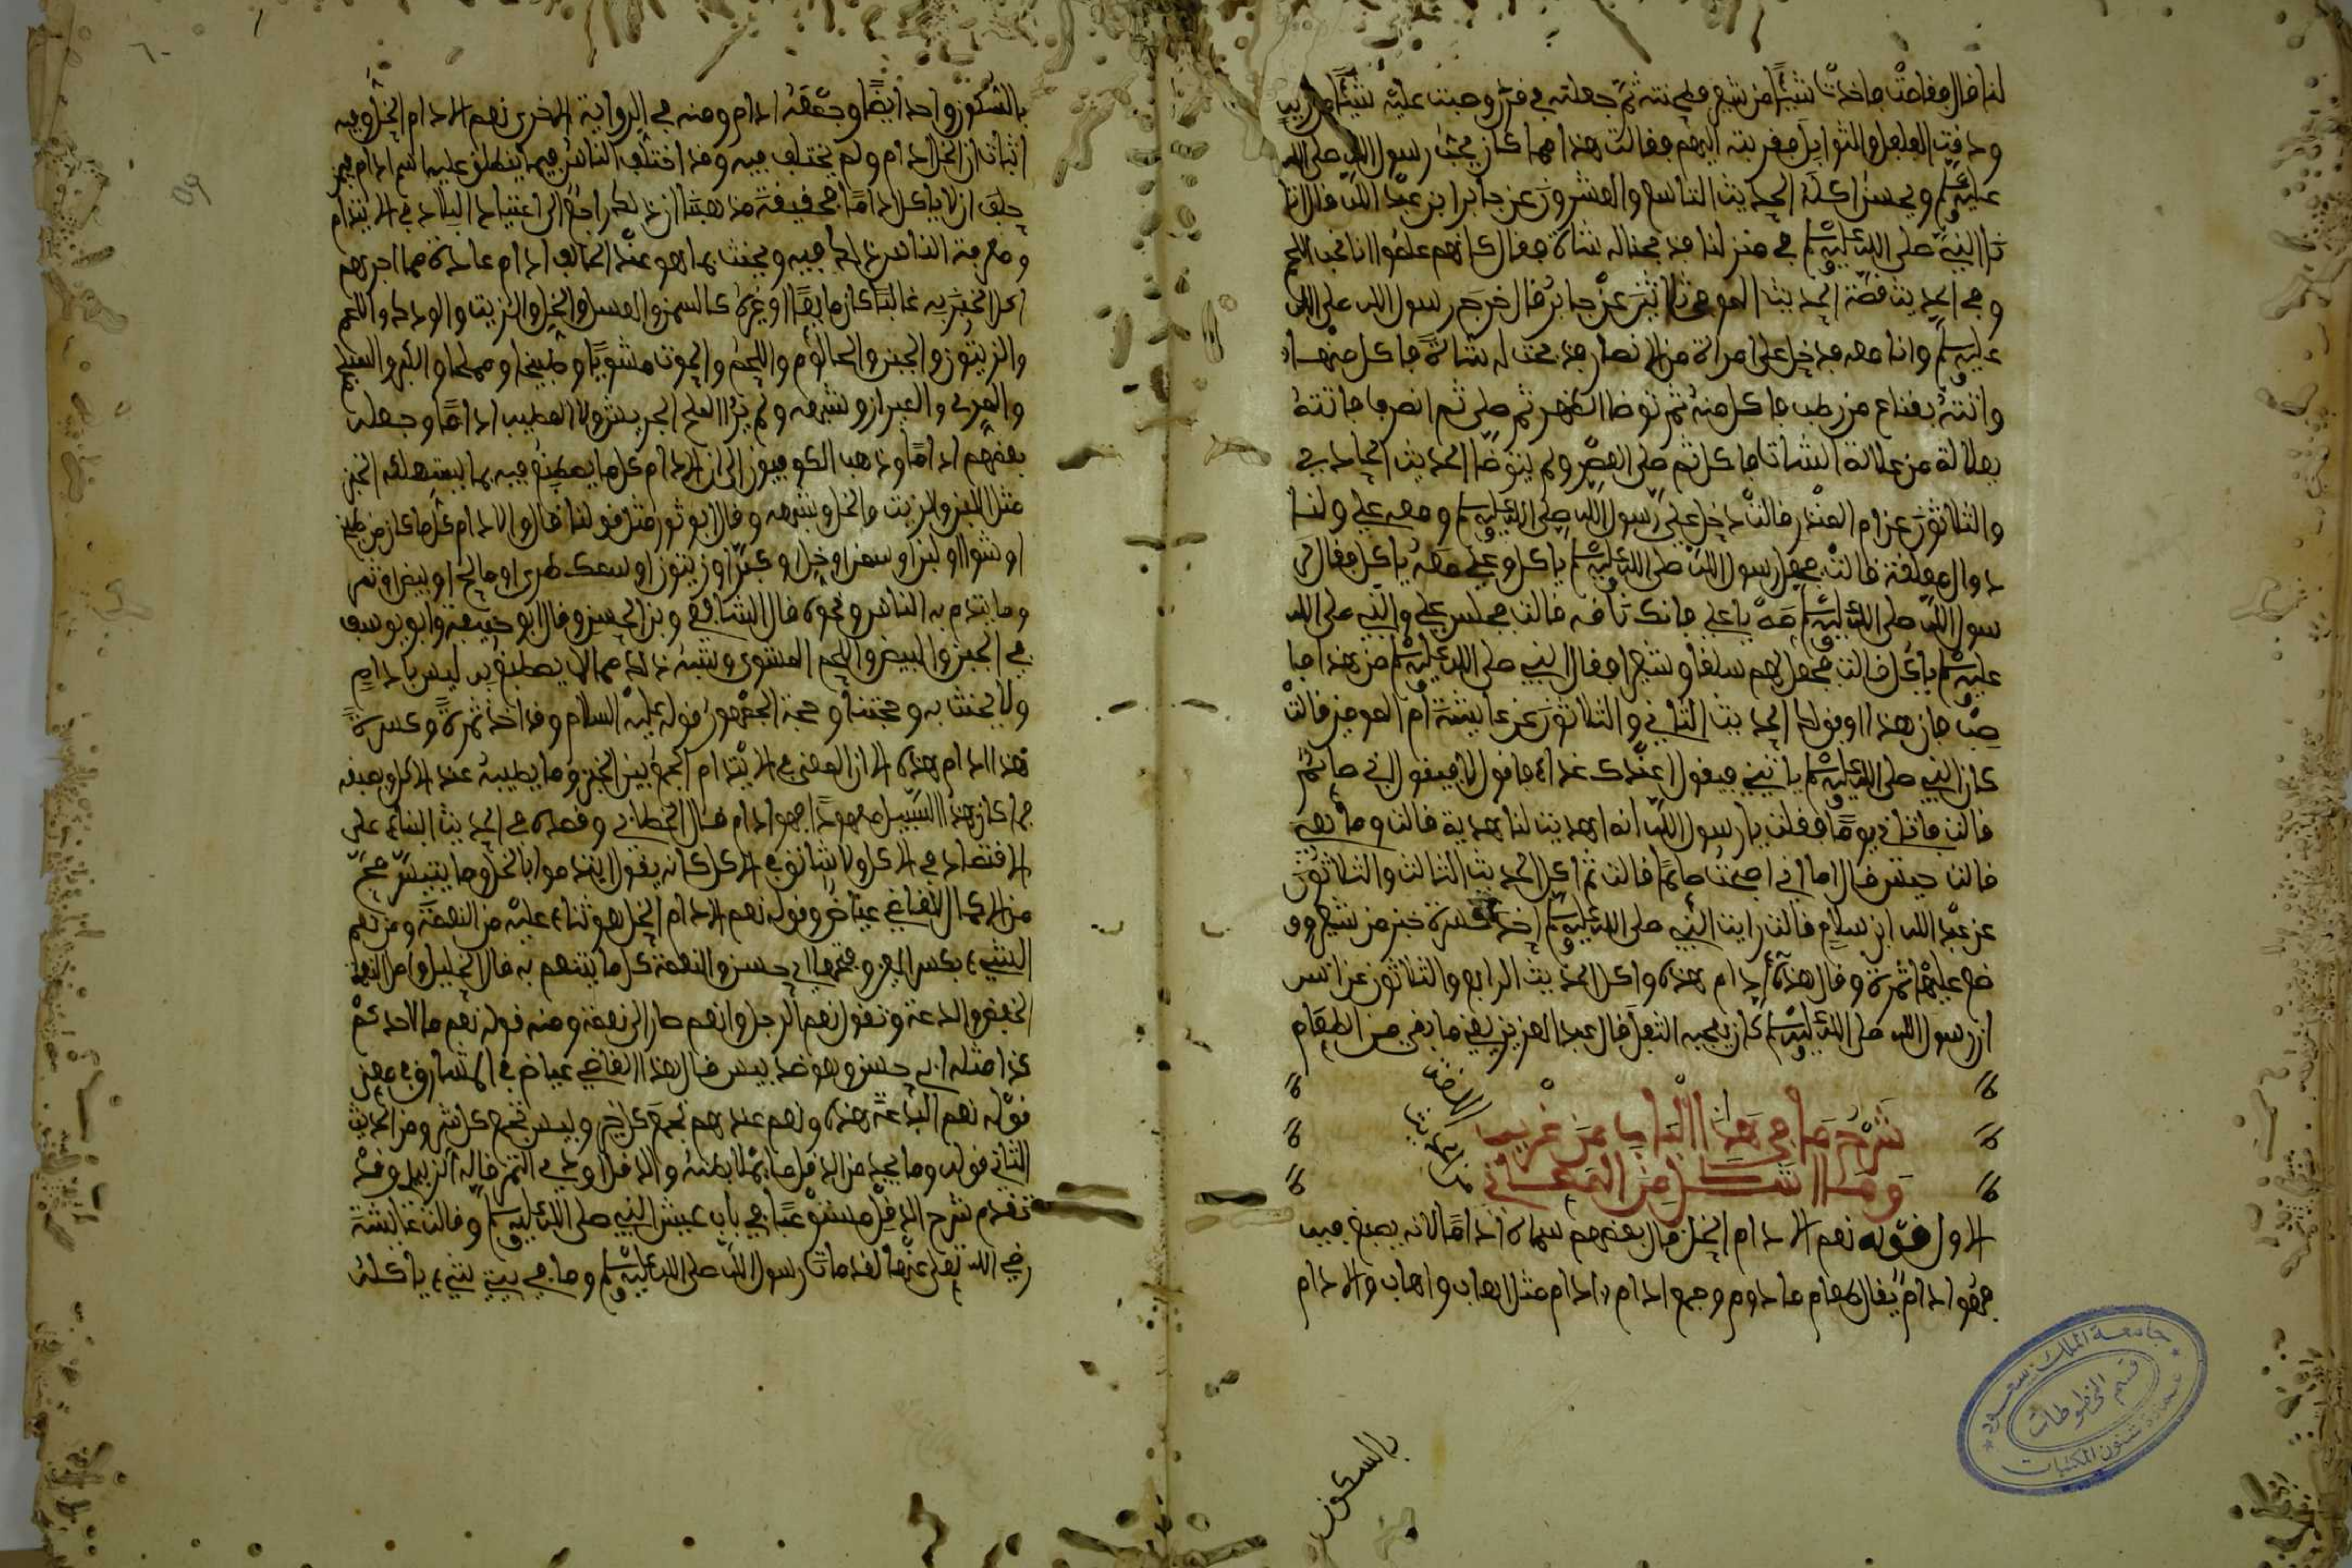 لنا قال فقامت فاخذت شيئا من شعير فطحنته ثم جعلته في قدر وصبت عليه شيئا من زيت
ودقت الفلفل والتوابل فقربته اليهم فقالت هذا مما كان يعجب رسول الله صلى الله
عليه وسلم ويحسن اكله الحديث التاسع والعشرون عن جابر ابن عبد الله قال اتا
نا النبي صلى الله عليه وسلم في منزلنا فذبحنا له شاة فقال كانهم علموا انا نحب اللحم
وفي الحديث قصة الحديث الموفي ثلاثين عن جابر قال خرج رسول الله صلى الله
عليه وسلم وانا معه فدخل على امراة من الانصار فذبحت له شاة فاكل منها
واتته بقناع من رطب فاكل منه ثم توضا للظهر ثم صلى ثم انصرف فاتته
بعلالة من علالة الشاة فاكل ثم صلى العصر ولم يتوضا الحديث الحادي
والثلاثون عن ام المنذر قالت دخل علي رسول الله صلى الله عليه وسلم ومعه علي ولنا
دوال معلقة قالت فجعل رسول الله صلى الله عليه وسلم ياكل وعلي معه ياكل فقال ر
سول الله صلى الله عليه وسلم مه يا علي فانك ناقه قالت فجلس علي والنبي صلى الله
عليه وسلم ياكل قالت فجعلت لهم سلقا وشعيرا فقال النبي صلى الله عليه وسلم من هذا فا
صب فان هذا اوفق لك الحديث الثاني والثلاثون عن عايشة ام المومنين قالت
كان النبي صلى الله عليه وسلم ياتيني فيقول اعندك غداء فاقول لا فيقول اني صائم
قالت فاتاني يوما فقلت يا رسول الله انه اهديت لنا هدية قالت وما هي
قالت حيس قال اما اني اصبحت صائما قالت ثم اكل الحديث الثالث والثلاثون
عن عبد الله ابن سلام قالت رايت النبي صلى الله عليه وسلم اخذ كسرة خبز من شعير وو
ضع عليها تمرة وقال هذه ادام هذه واكل الحديث الرابع والثلاثون عن انس
ان رسول الله صلى الله عليه وسلم كان يعجبه الثفل قال عبد العزيز يعني ما بقي من الطعام
شرح ما في هذا الباب من غريب
وما اشكل من المعاني
الاول قوله نعم الادام الخل قال بعضهم سماه اداما لانه يصبغ فيه
فهو ادام يقال طعام مادوم وجمع ادام ادام مثل اهاب واهاب والادام
بالسكون
بالسكون واحد ايضا وجمعه ادام ومنه في الرواية الاخرى نعم الادام الخل وفيه
اثبات ان الخل ادام ولم يختلف فيه وقد اختلف الناس فيما ينطلق عليه اسم ادام فيمن
حلف ان لا ياكل اداما فحقيقة مذهبنا ان ذلك راجع الى اعتياد البلاد في الايتدام
ومعرفة الناس ذلك فيه ويحنث بما هو عند الحالف ادام عادة مما اجرهم
اكل الخبز به غالبا كان مايعا او غيره كالسمن والعسل والخل والزيت والودك والشحم
والزيتون والجبن والحالوم واللحم والحوت مشويا وطبيخا ومملحا
بعضهم اداما وذهب الكوفيون الى ان الادام كل ما يصطبغ فيه بما يستهلكه الخبز
مثل اللبن والزيت والخل وشبهه وقال ابو ثور مثل قولنا قال والادام كل ما كان من طبخ
او شوا او لبن او سمن او خل او جبن او زيتون او سمك طري او مالح او بيض او تمر
وما يتدم به الناس ونحوه قال الشافعي وبن الحسن وقال ابو حنيفة وابو يوسف
في الجبن والبيض واللحم المشوي وشبه ذلك مما لا يصطبغ به ليس بادام
ولا يحنث به وحجتنا وحجة الجمهور قوله عليه السلام وقد اخذ تمرة وكسرة
هذا ادام هذه لان المعنى في الايتدام الجمع بين الخبز وما يطيبه عند الاكل
فما كان هذا السبيل معهودا فهو ادام قال الخطابي وقصده في الحديث الثناء على
الاقتصاد في الاكل ولا يتانق في الاكل كانه يقول ايتدموا بالخل وما تيسر
قال القاضي عياض وقوله نعم الادام الخل هو ثناء عليه من النعمة ومن نعم
الشيء بكسر العين وفتحها اي حسن والنعمة كل ما يتنعم به قال الخليل واصل النعمة
الخفض والدعة وتقول نعم الرجل وانعم صار الى نعمة ومنه قوله نعم ما لاحدكم
كذا مثله اي حسن وهو ضد بيس قال هذا القاضي عياض في المشارق في معنى
قوله نعم البدعة هذه ونعم عندهم تجمع كل خير وبيس تجمع كل شر ومن الحديث
الثاني قوله وما يجد من الدقل ما يملا بطنه والدقل اردى التمر قاله الزبيدي وقد
تقدم شرح الدقل مستوعبا في باب عيش النبي صلى الله عليه وسلم وقالت عايشة
رضي الله تعلى عنها لقد مات رسول الله صلى الله عليه وسلم وما في بيتي شيء ياكله
جامعة الملك سعود
قسم المخطوطات
عمادة شئون المكتبات